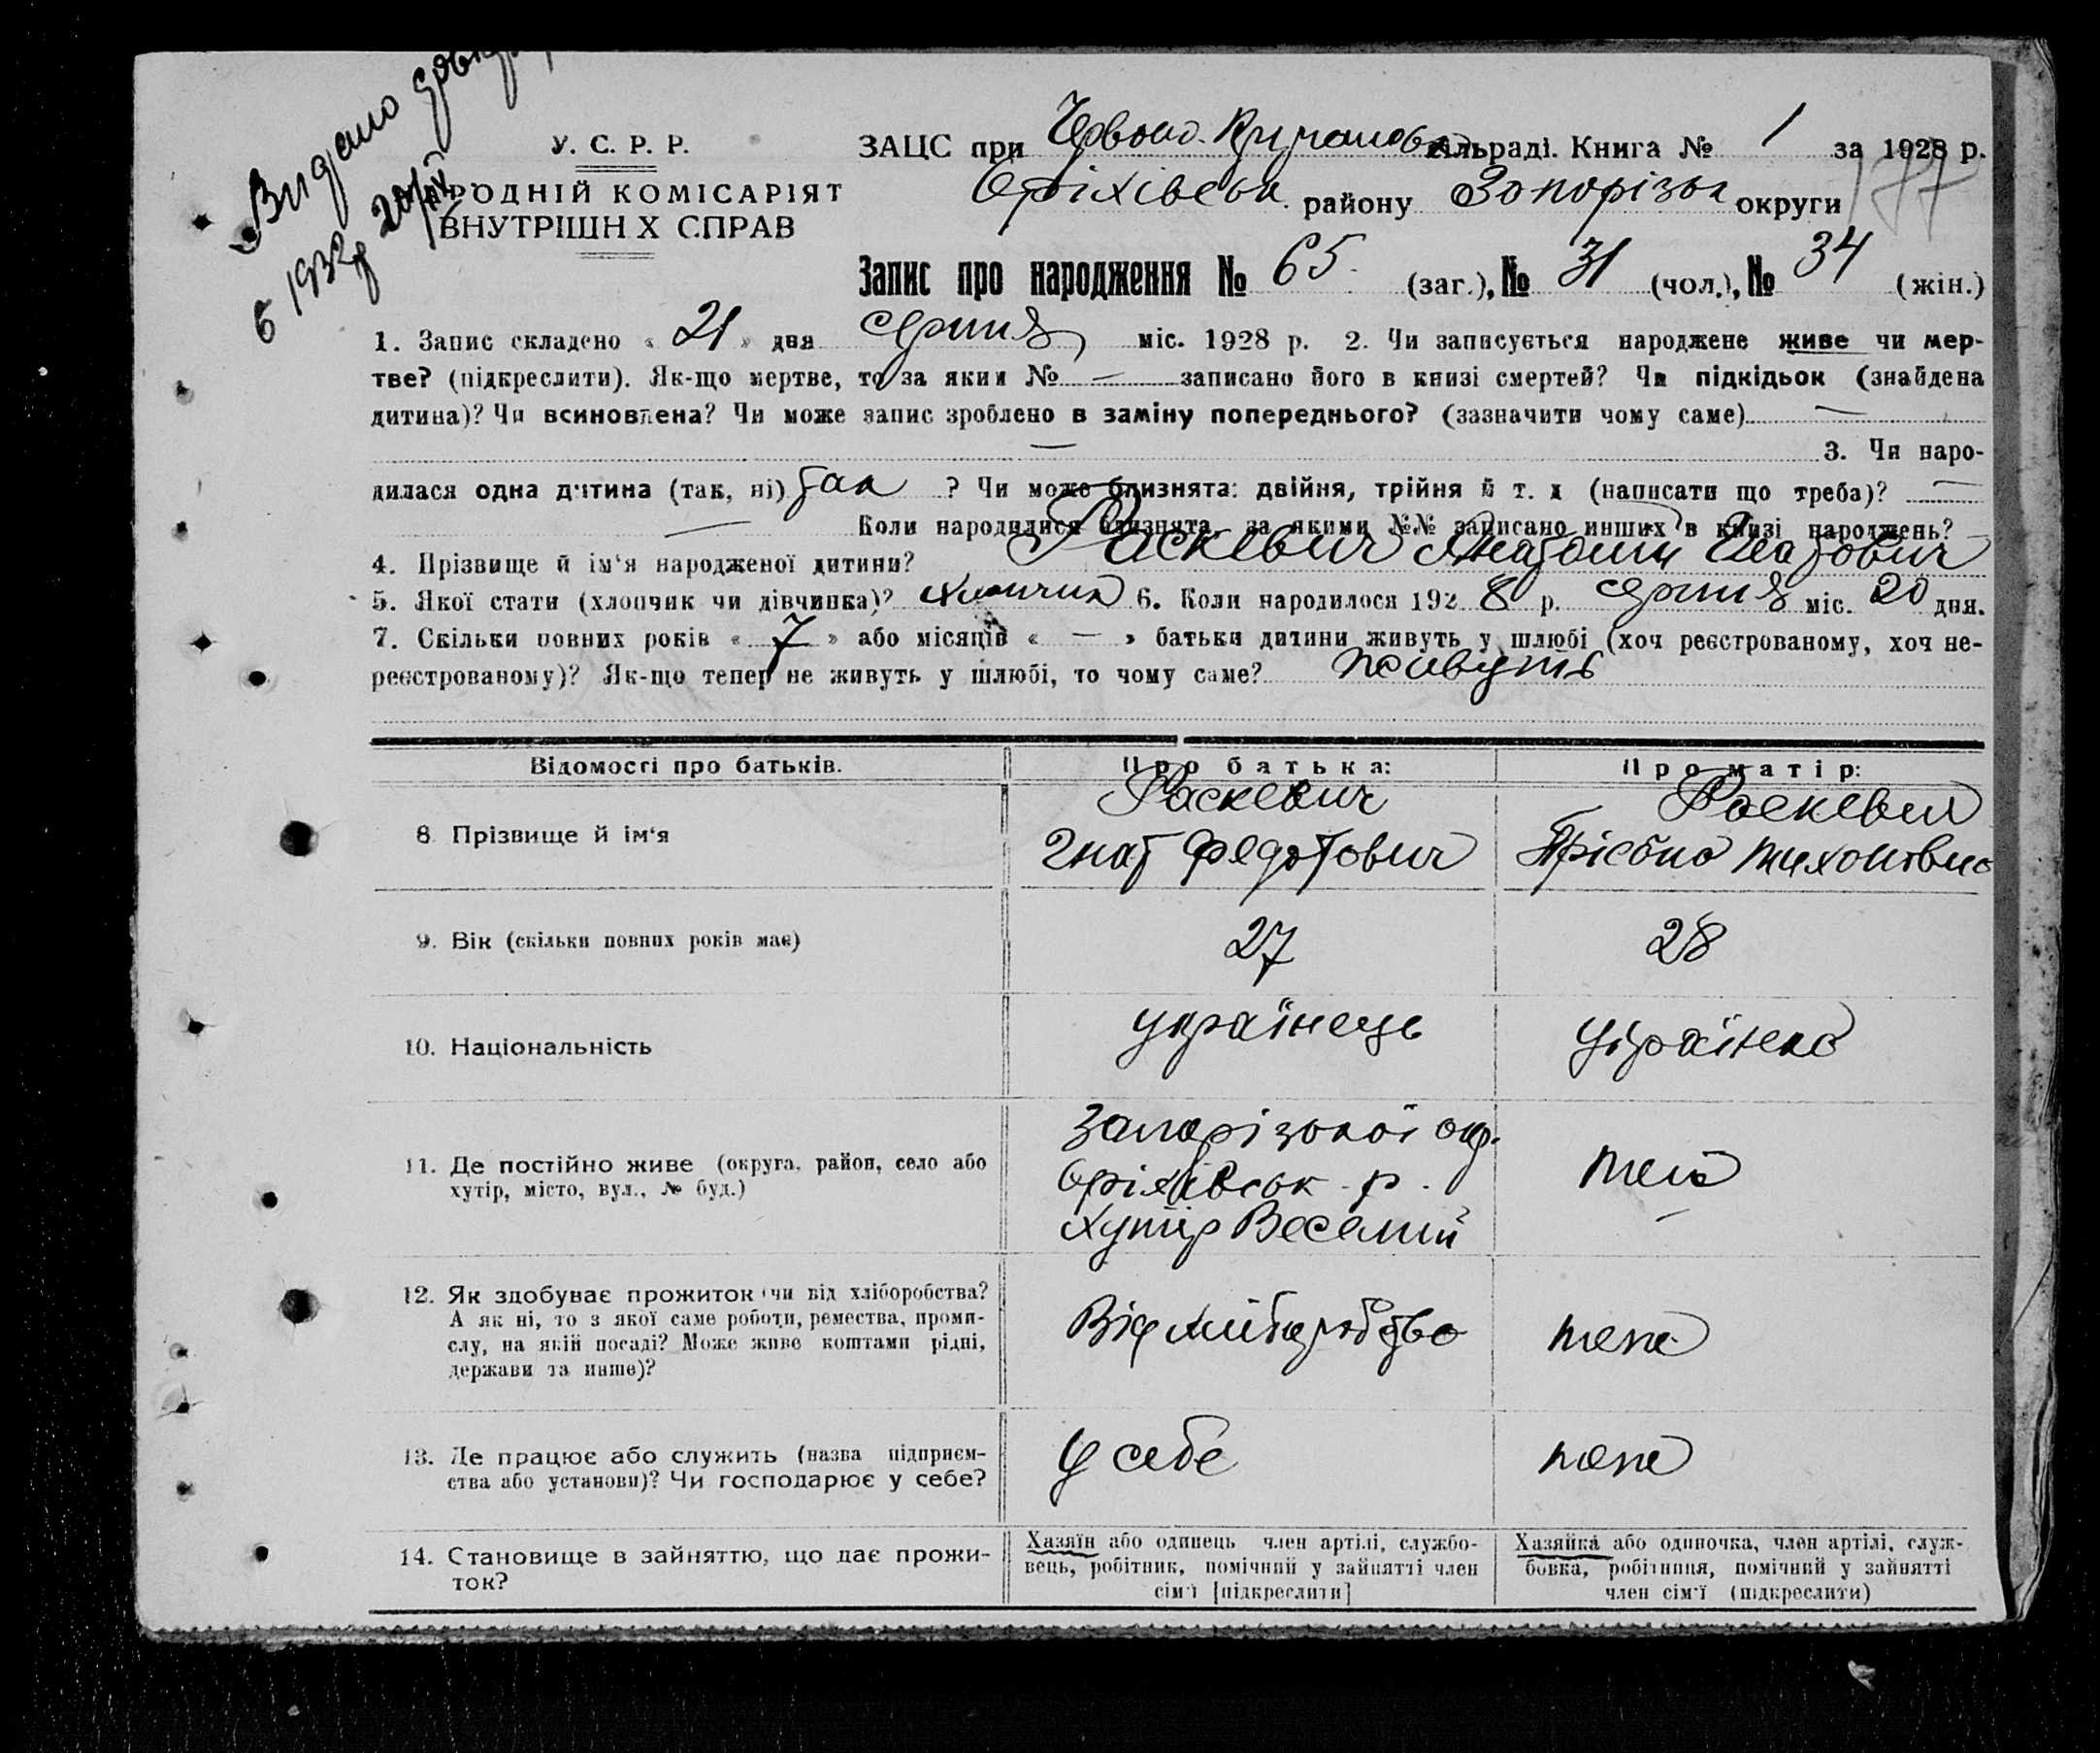 Видано
б 1932р 20/IX
У. С. Р. Р.
РОДНІЙ КОМІСАРІЯТ
ВНУТРІШН Х СПРАВ
ЗАЦС при Червоно. сільраді. Книга № 1 за 1928 р.
Оріхівськ. району Запорізьк округи 177
Запис про народження № 65. (заг.), № 31 (чол.), № 34 (жін.)
1. Запис складено « 21 » дня серпня міс. 1928 р. 2. Чи записується народжене живе чи мер-
тве? (підкреслити). Як-що мертве, то за яким № — записано його в книзі смертей? Чи підкідьок (знайдена
дитина)? Чи всиновлена? Чи може запис зроблено в заміну попереднього? (зазначити чому саме) —
— 3. Чи наро-
дилася одна дитина (так, ні) так ? Чи може близнята: двійня, трійня й т. д (написати що треба)? —
— Коли народилися близнята, за якими №№ записано инших в книзі народжень? —
4. Прізвище й ім'я народженої дитини? Раскевич Анатолий Гнатович
5. Якої стати (хлопчик чи дівчинка)? хлопчик 6. Коли народилося 192 8 р. серпня міс. 20 дня.
7. Скільки повних років « 7 » або місяців « — » батьки дитини живуть у шлюбі (хоч реєстрованому, хоч не-
реєстрованому)? Як-що тепер не живуть у шлюбі, то чому саме? живуть
Відомості про батьків. Про батька: Про матір:
8 Прізвище й ім'я Раскевич Раскевич
Гнат Федотович Тихонівна
9. Вік (скільки повних років має) 27 28
10. Національність українець українка
11. Де постійно живе (округа, район, село або
хутір, місто, вул., № буд.)
Запорізької окр.
Оріхівськ. р.
хутір Веселий
теж
12. Як здобуває прожиток чи від хліборобства?
А як ні, то з якої саме роботи, ремества, проми-
слу, на якій посаді? Може живе коштами рідні,
держави та инше)?
Від хліборобство
теж
13. Де працює або служить (назва підприєм-
ства або установи)? Чи господарює у себе?
у себе
теж
14. Становище в зайняттю, що дає прожи-
ток?
Хазяїн або одинець член артілі, службо-
вець, робітник, помічний у зайнятті член
сім'ї [підкреслити]
Хазяйка або одиночка, член артілі, служ-
бовка, робітниця, помічний у зайнятті
член сім'ї (підкреслити)